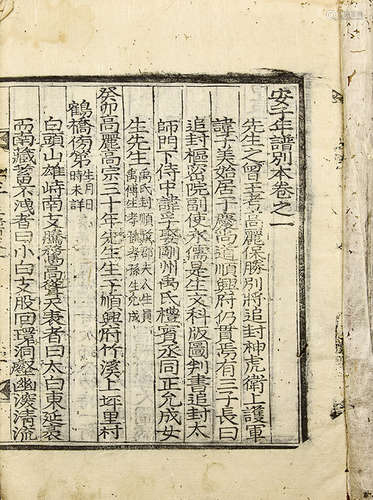 安子年譜別本卷之一
先生之曾王考高麗保勝別將追封神虎衛上護軍
諱子美始居于慶尙道順興府仍貫焉有三子長曰
追封樞密院副使永儒是生文科版圖判書追封太
師門下侍中諱孚娶剛州禹氏樓賓丞同正允成女
生先生 禹氏封順政郡夫人生員
生允成
癸卯高麗高宗三十年先生生于順興府竹溪上坪里村
鶴橋傍第 生月日
時未詳
白頭山雄峙南支騰騖高御天表者曰太白東延袤
而南藏蓄不洩者曰小白支股回環洞壑幽邃淸流